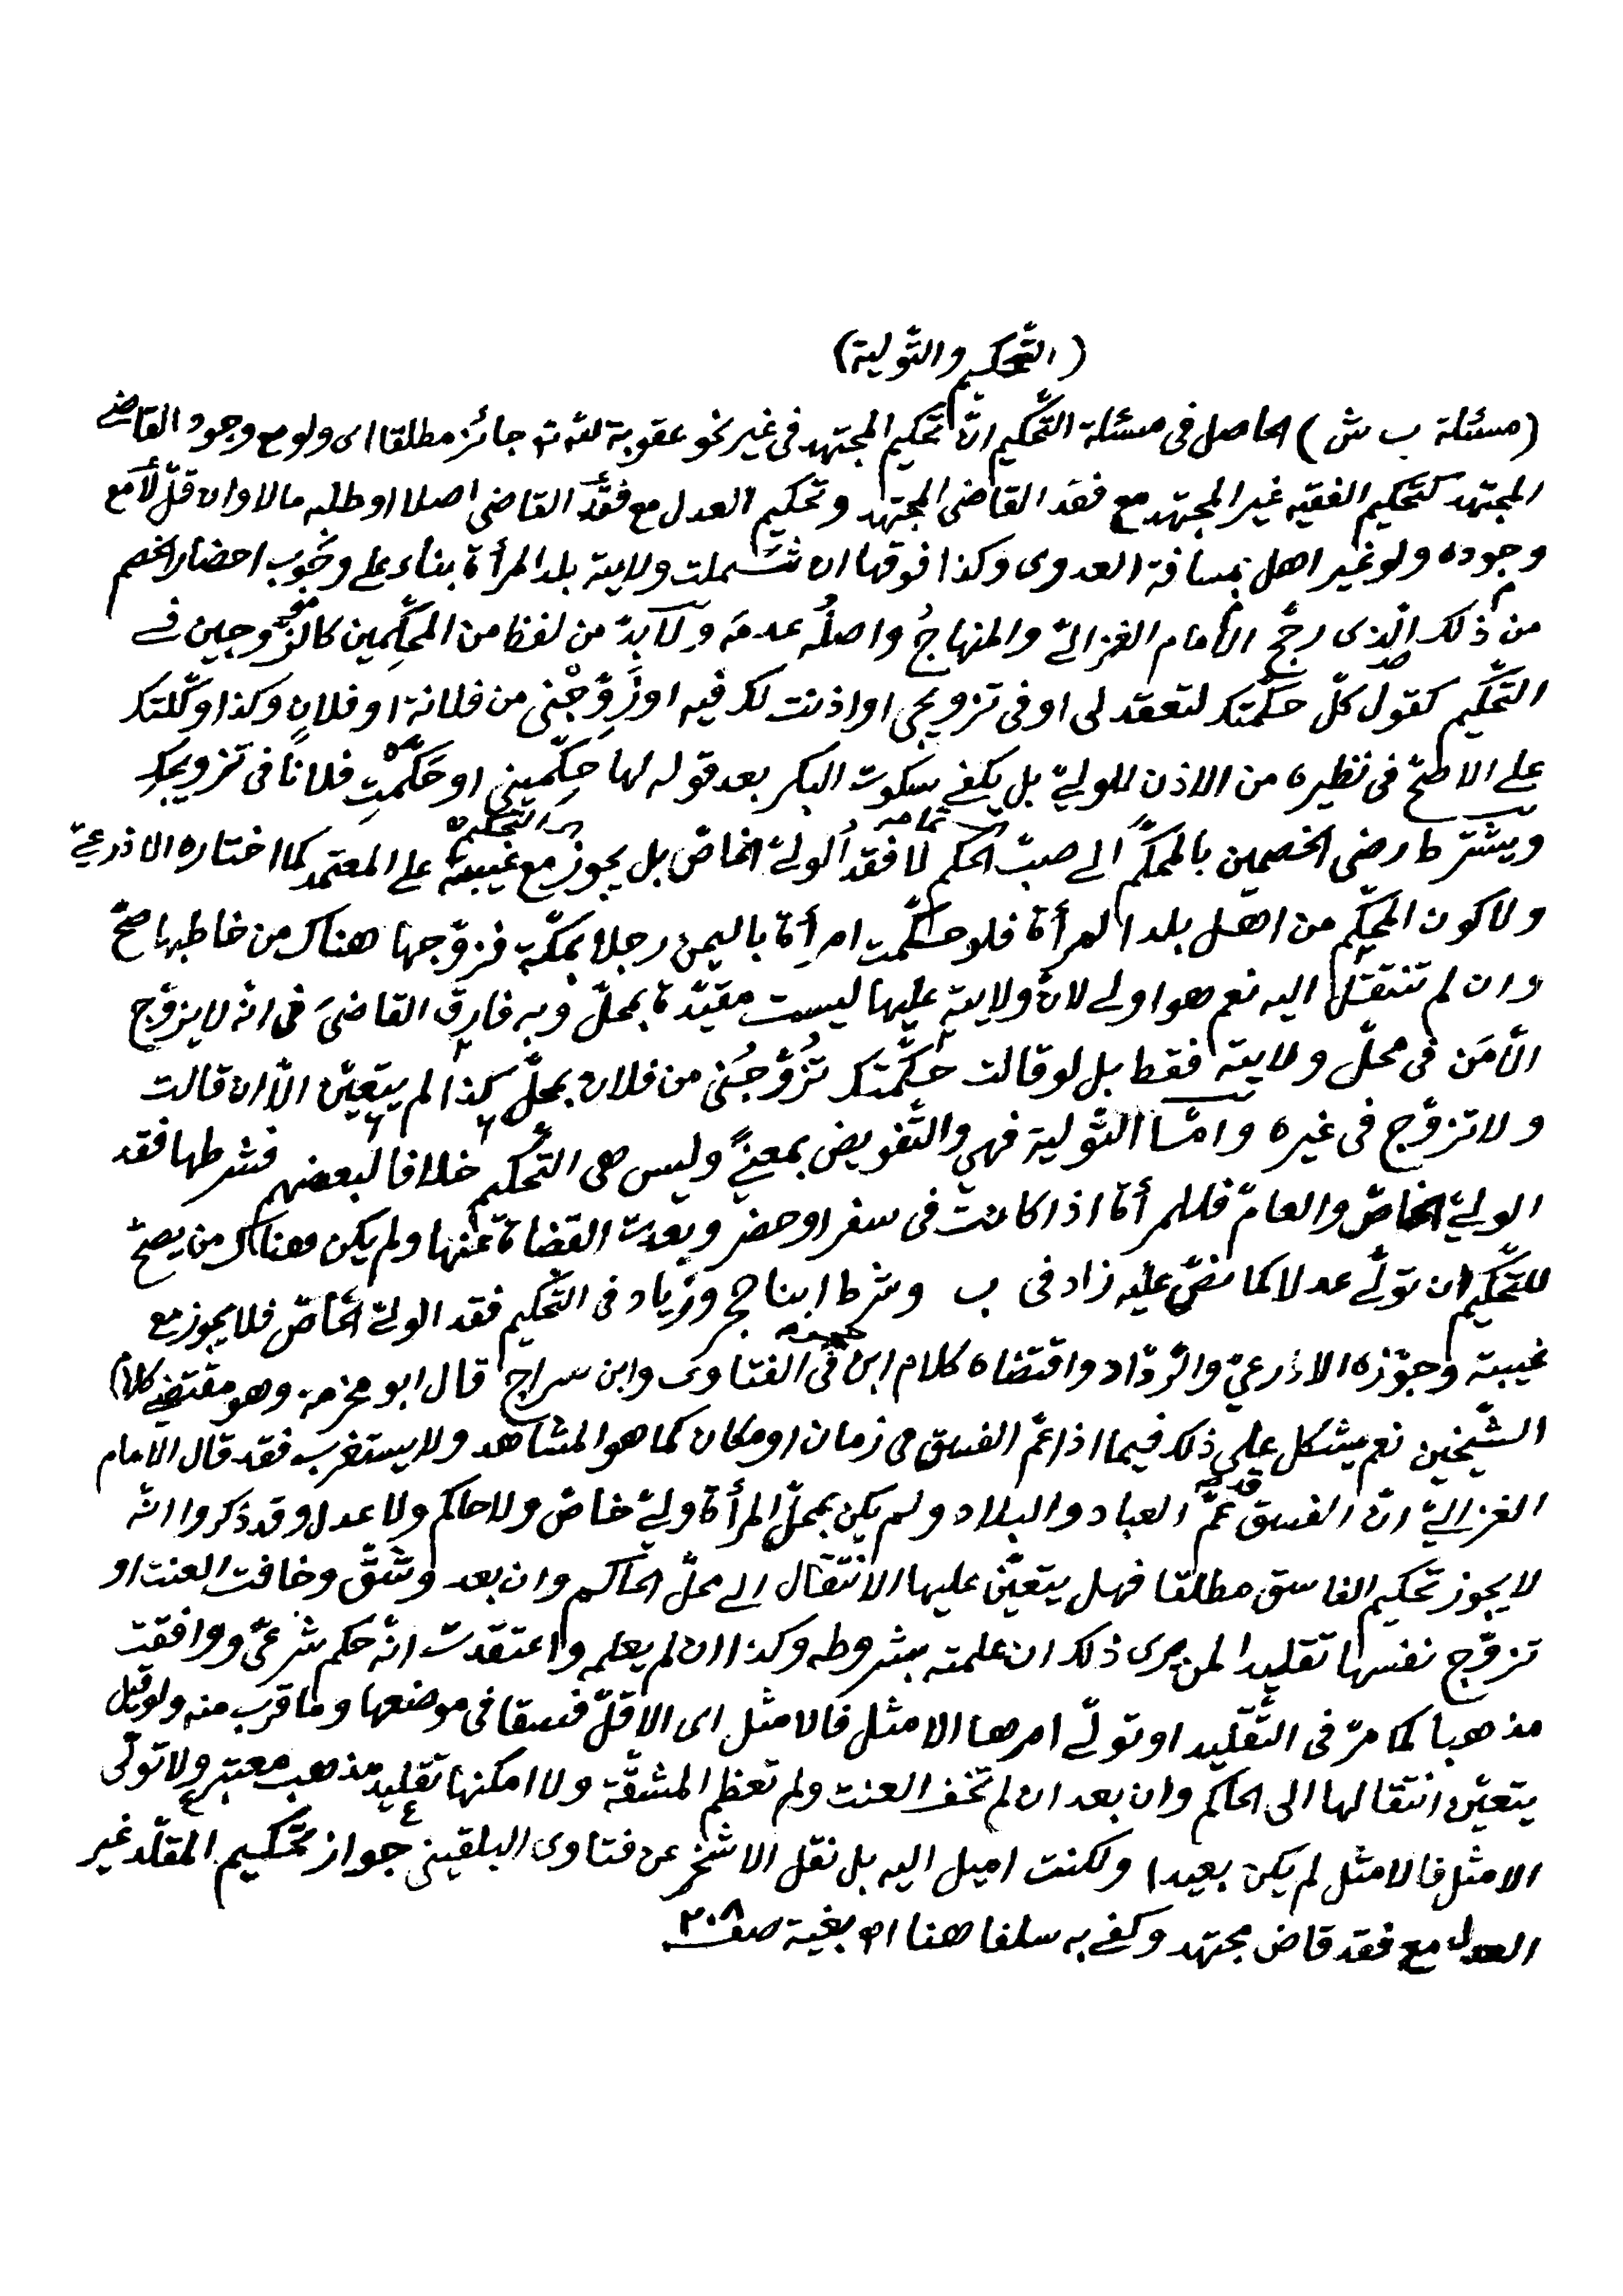 (التّحكيم والتّولية)
(مسئلة ب ش) الحاصل فى مسئلة التّحكيم انّ تحكيم المجتهد فى غير نحو عقوبة للّه تعـ جائز مطلقا اى ولو مع وجود القاضى
المجتهد كتحكيم الفقيه غير المجتهد مع فقد القاضى المجتهد وتحكيم العدل مع فقد القاضى اصلا او طلبه مالا وان قلّ لا مع
وجوده ولو غير اهل بمسافة العدوى وكذا فوقها ان شملت ولايته بلد المرأة بناء على وجوب احضار الخصم
من ذلك الّذى رجّح الامام الغزالىّ والمنهاجُ واصلُه عدمَه ولا بدّ من لفظ من المحكِّمين كالزّوجين فى
التّحكيم كقول كلّ حكّمتك لتعقد لى او فى تزويجى او اذنت لك فيه او زَوِّجْنى من فلانة او فلانٍ وكذا وكّلتك
على الاصحّ فى نظيره من الاذن للولىّ بل يكفى سكوت البكر بعد قوله لها حكّمينى او حَكَّمْتِ فلانا فى تزويجك
ويشترط رضى الخصمين بالمحكَّم الى صبّ الحكم لا فقد الولىّ الخاصّ بل يجوز مع غيبته على المعتمد كما اختاره الاذرعىّ
ولا كون المحكّم من اهل بلد المرأة فلو حكّمت امرأة باليمن رجلا بمكّة فزوّجها هناك من خاطبها صحّ
وان لم تنتقل اليه نعم هو اولى لانّ ولايته عليها ليست مقيّدة بمحلّ وبه فارق القاضىَ فى انّه لا يزوّج
الّا مَن فى محلّ ولايته فقط بل لو قالت حكّمتك تُزَوِّجُنى من فلان بمحلّ كذا لم يتعيّن الّا ان قالت
ولا تزوّج فى غيره وامّا التّولية فهى والتّفويض بمعنىً وليس هى التّحكيم خلافا لبعضهم فشرطها فقد
الولىّ الخاصّ والعامّ فللمرأة اذا كانت فى سفر او حضر وبعدت القضاة عنها ولم يكن هناك من يصحّ
للتّحكيم ان تولّى عدلا كما نصّ عليه زاد فى ب وشرط ابنا حج وزياد فى التّحكيم فقد الولىّ الخاصّ فلا يجوز مع
غيبته وجوّزه الاذرعىّ والرّدّاد واقتضاه كلام ابن حجر فى الفتاوى وابن سراج قال ابو مخرمة وهو مقتضى كلام
الشّيخين نعم يشكل على ذلك فيما اذا عمّ الفسق فى زمان او مكان كما هو المشاهد ولا يستغرب فقد قال الامام
الغزالىّ انّ الفسق قد عمّ العباد والبلاد ولم يكن بمحلّ المرأة ولىّ خاصّ ولا حاكم ولا عدل وقد ذكروا انّه
لا يجوز تحكيم الفاسق مطلقا فهل يتعيّن عليها الانتقال الى محلّ الحاكم وان بعد وشقّ وخافت العنت او
تزوّج نفسها تقليدا لمن يرى ذلك ان علمته بشروطه وكذا ان لم يعلمه واعتقدت انّه حكم شرعىّ ووافقت
مذهبا كما مرّ فى التّقليد او تولّى امرها الامثل فالامثل اى الاقلّ فسقا فى موضعها وما قرب منه ولو قيل
يتعيّن انتقالها الى الحاكم وان بعد ان لم تخف العنت ولم تعظم المشقّة ولا امكنها تقليد مذهب معتبر ولا تولّى
الامثل فالامثل لم يكن بعيدا ولكنت اميل اليه بل نقل الاشخر عن فتاوى البلقينى جواز تحكيم المقلّد غير
العدل مع فقد قاض مجتهد وكفى به سلفا هنا اه بغية صفـ ٢٠٨